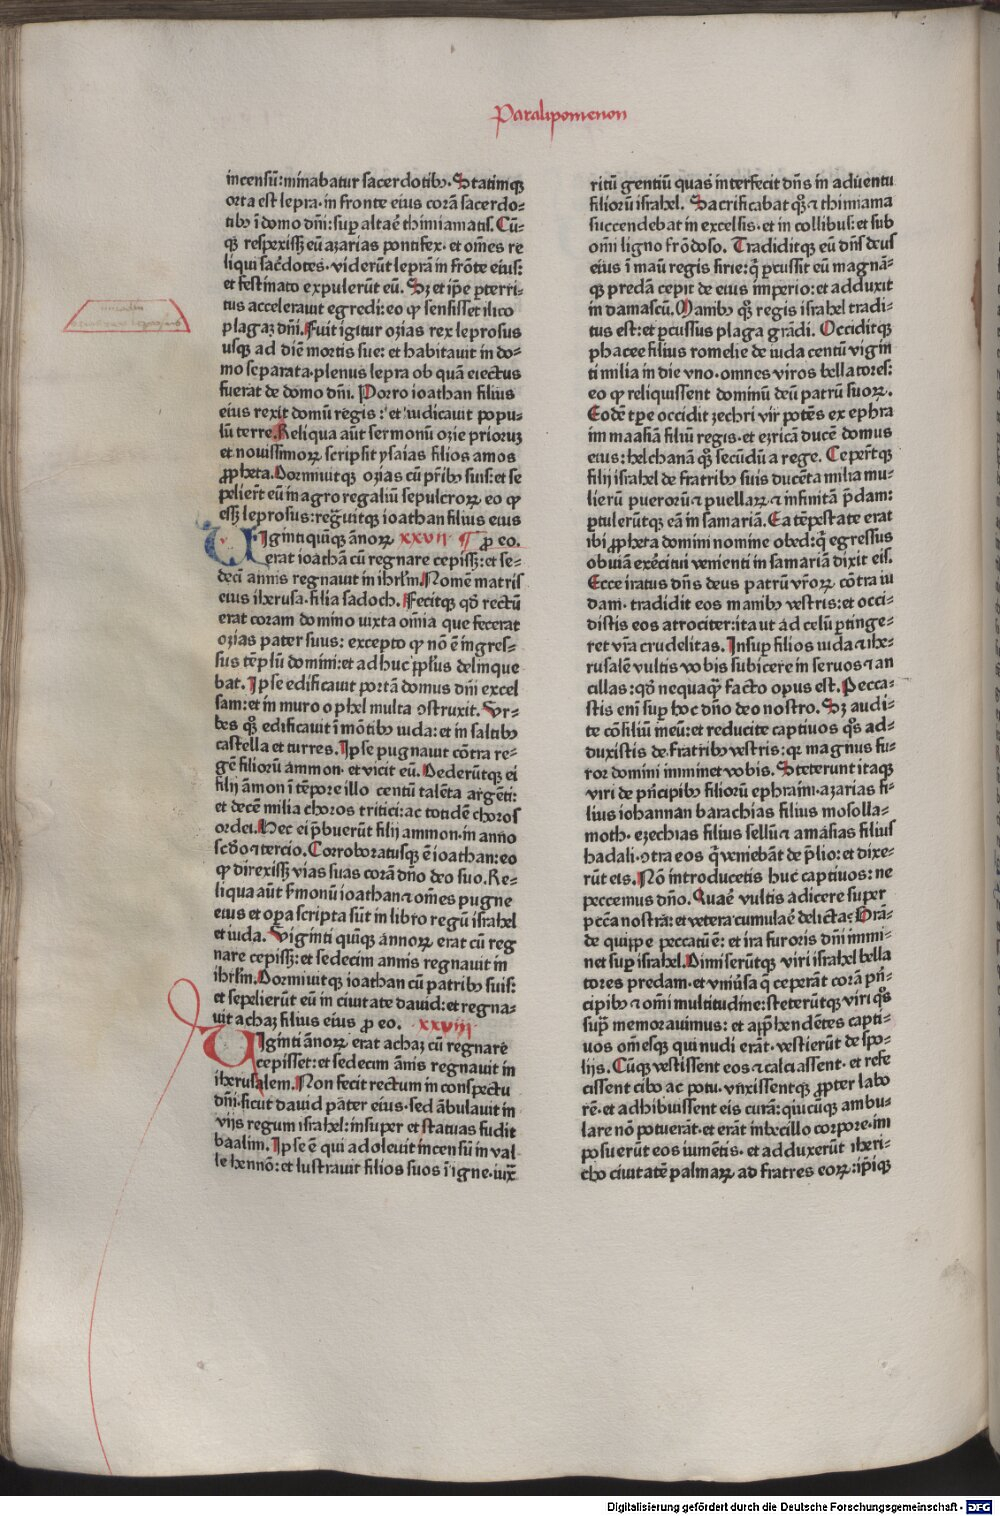 Paralipomenon
incensū: minabatur sacerdotibꝫ. Statimqꝫ
orta est lepra· in fronte eius corā sacerdo-
tibꝫ ī domo dn̄i: suꝑ altaē thimiamatis. Cū-
qꝫ respexissꝫ eū azarias pontifex· et om̄es re
liqui sac̄dotes· viderūt leprā in frōte eius:
et festinato expulerūt eū. Sꝫ et ip̄e ꝑterri-
tus acceleravit egredi: eo ꝙ sensisset ilico
plagaꝫ dn̄i. Fuit igitur ozias rex leprosus
usqꝫ ad diē mortis sue: et habitavit in do-
mo separata· plenus lepra ob quā eiectus
fuerat de domo dn̄i. Porro ioathan filius
eius rexit domū regis: et iudicavit popu-
lū terre. Reliqua aūt sermonū ozie prioruꝫ
et novissimoꝝ scripsit ysaias filios amos
ꝓpheta. Dormivitqꝫ ozias cū pr̄ibꝫ suis: et se
pelier̄t eū in agro regaliū sepulcroꝝ eo ꝙ
essꝫ leprosus: regn̄vitqꝫ ioathan filius eius
ꝓ eo. xxvii
VIginti quīqꝫ ānoꝝ
erat ioathā cū regnare cepissꝫ: et se-
decī annis regnavit in ihrl̄m. Nomē matris
eius iherusa· filia sadoch. Fecitqꝫ qd̄ rectū
erat coram domino iuxta om̄ia que fecerat
ozias pater suus: excepto ꝙ nō ē ingres-
sus tēplū domini: et adhuc ꝓpl̄us delinque
bat. Ipse edificavit portā domus dn̄i excel
sam: et in muro ophel multa ꝯstruxit. Vr-
bes qꝫ edificavit ī mōtibꝫ iuda: et in saltibꝫ
castella et turres. Ipse pugnavit cōtra re-
gē filiorū ammon· et vicit eū. Dederūtqꝫ ei
filij āmon ī tēpore illo centū talēta argēti:
et decē milia choros tritici: ac totidē choros
ordei. Hec ei p̄buerūt filij ammon· in anno
scd̄o ⁊ tercio. Corroboratusqꝫ ē ioathan: eo
ꝙ direxissꝫ vias suas corā dn̄o deo suo. Re-
liqua aūt s̄monū ioathan ⁊ om̄es pugne
eius et oꝑa scripta sūt in libro regū israhel
et iuda. Viginti quīqꝫ annoꝝ erat cū reg
nare cepissꝫ: et sedecim annis regnavit in
ihrl̄m. Dormivitqꝫ ioathan cū patribꝫ suis:
et sepelierūt eū in civitate david: et regna-
vit achaz filius eius ꝓ eo. xxviii
VIginti ānoꝝ erat achaz cū regnare
cepisset: et sedecim ānis regnavit in
iherusalem. Non fecit rectum in conspectu
dn̄i· sicut david pater eius· sed ābulavit in
vijs regum israhel: insuper et statuas fudit
baalim. Ipse ē qui adolevit incensū in val-
le hennō: et lustravit filios suos ī igne· iux̄
ritū gentiū quas interfecit dn̄s in adventu
filiorū israhel. Sacrificabat qꝫ ⁊ thimiama
succendebat in excelsis· et in collibus: et sub
om̄i ligno frōdoso. Tradiditqꝫ eū dn̄s deus
eius ī manū regis sirie: q̄ ꝑcussit eū magnā-
qꝫ predā cepit de eius imperio: et adduxit
in damascū. Manibꝫ qꝫ regis israhel tradi-
tus est: et ꝑcussus plaga grādi. Occiditqꝫ
phacee filius romelie de iuda centū vigin
ti milia in die vno· omnes viros bellatores:
eo ꝙ reliquissent dominū deū patrū suoꝝ.
Eodē tꝑe occidit zechri vir potēs ex ephra
im maasiā filiū regis· et ezricā ducē domus
eius: helchanā qꝫ secūdū a rege. Ceper̄tqꝫ
filij israhel de fratribꝫ suis ducēta milia mu-
lierū puerorū ⁊ puellaꝝ ⁊ infinitā p̄dam:
ꝑtulerūtqꝫ eā in samariā. Ea tēpestate erat
ibi ꝓpheta domini nomine obed: q̄ egressus
obviā exērcitui venienti in samariā dixit eis.
Ecce iratus dn̄s deus patrū vr̄oꝝ cōtra iu
dam· tradidit eos manibꝫ vestris: et occi-
distis eos atrociter: ita ut ad celū ꝑtinge-
ret vr̄a crudelitas. Insuꝑ filios iuda ⁊ ihe-
rusalē vultis vobis subicere in servos ⁊ an
cillas: qd̄ nequaqꝫ facto opus est. Pecca-
stis enī suꝑ hoc dn̄o deo nostro. Sꝫ audi-
te cōsiliū meū: et reducite captivos q̄s ad-
duxistis de fratribꝫ vestris: qꝛ magnus fu-
ror domini imminet vobis. Steterunt itaqꝫ
viri de prīcipibꝫ filiorū ephraim· azarias fi-
lius iohannan barachias filius mosolla-
moth· ezechias filius sellū ⁊ amasias filius
hadali· ꝯtra eos q̄ veniebāt de p̄lio: et dixe-
rūt eis. Nō introducetis huc captivos: ne
peccemus dn̄o. Quaē vultis adicere super
pcc̄a nostra: et vetera cumulaē delicta? Grā-
de quippe peccatū ē: et ira furoris dn̄i immi-
net suꝑ israhel. Dimiserūtqꝫ viri israhel bella
tores predam· et vniv̄sa q̄ ceperāt corā prī-
cipibꝫ ⁊ om̄i multitudine: steterūtqꝫ viri q̄s
supͣ memoravimus: et apꝓhendētes capti-
vos om̄esqꝫ qui nudi erāt· vestierūt de spo-
lijs. Cūqꝫ vestissent eos ⁊ calciassent· et refe
cissent cibo ac potu· vnxissentqꝫ ꝓpter labo
rē· et adhibuissent eis curā: quicūqꝫ ambu-
lare nō potuerāt· et erāt inbecillo corpore· im
posuerūt eos iumētis· et adduxerūt iheri-
cho civitatē palmaꝝ ad fratres eoꝝ: ip̄iqꝫ
Digitalisierung gefördert durch die Deutsche Forschungsgemeinschaft - DFG